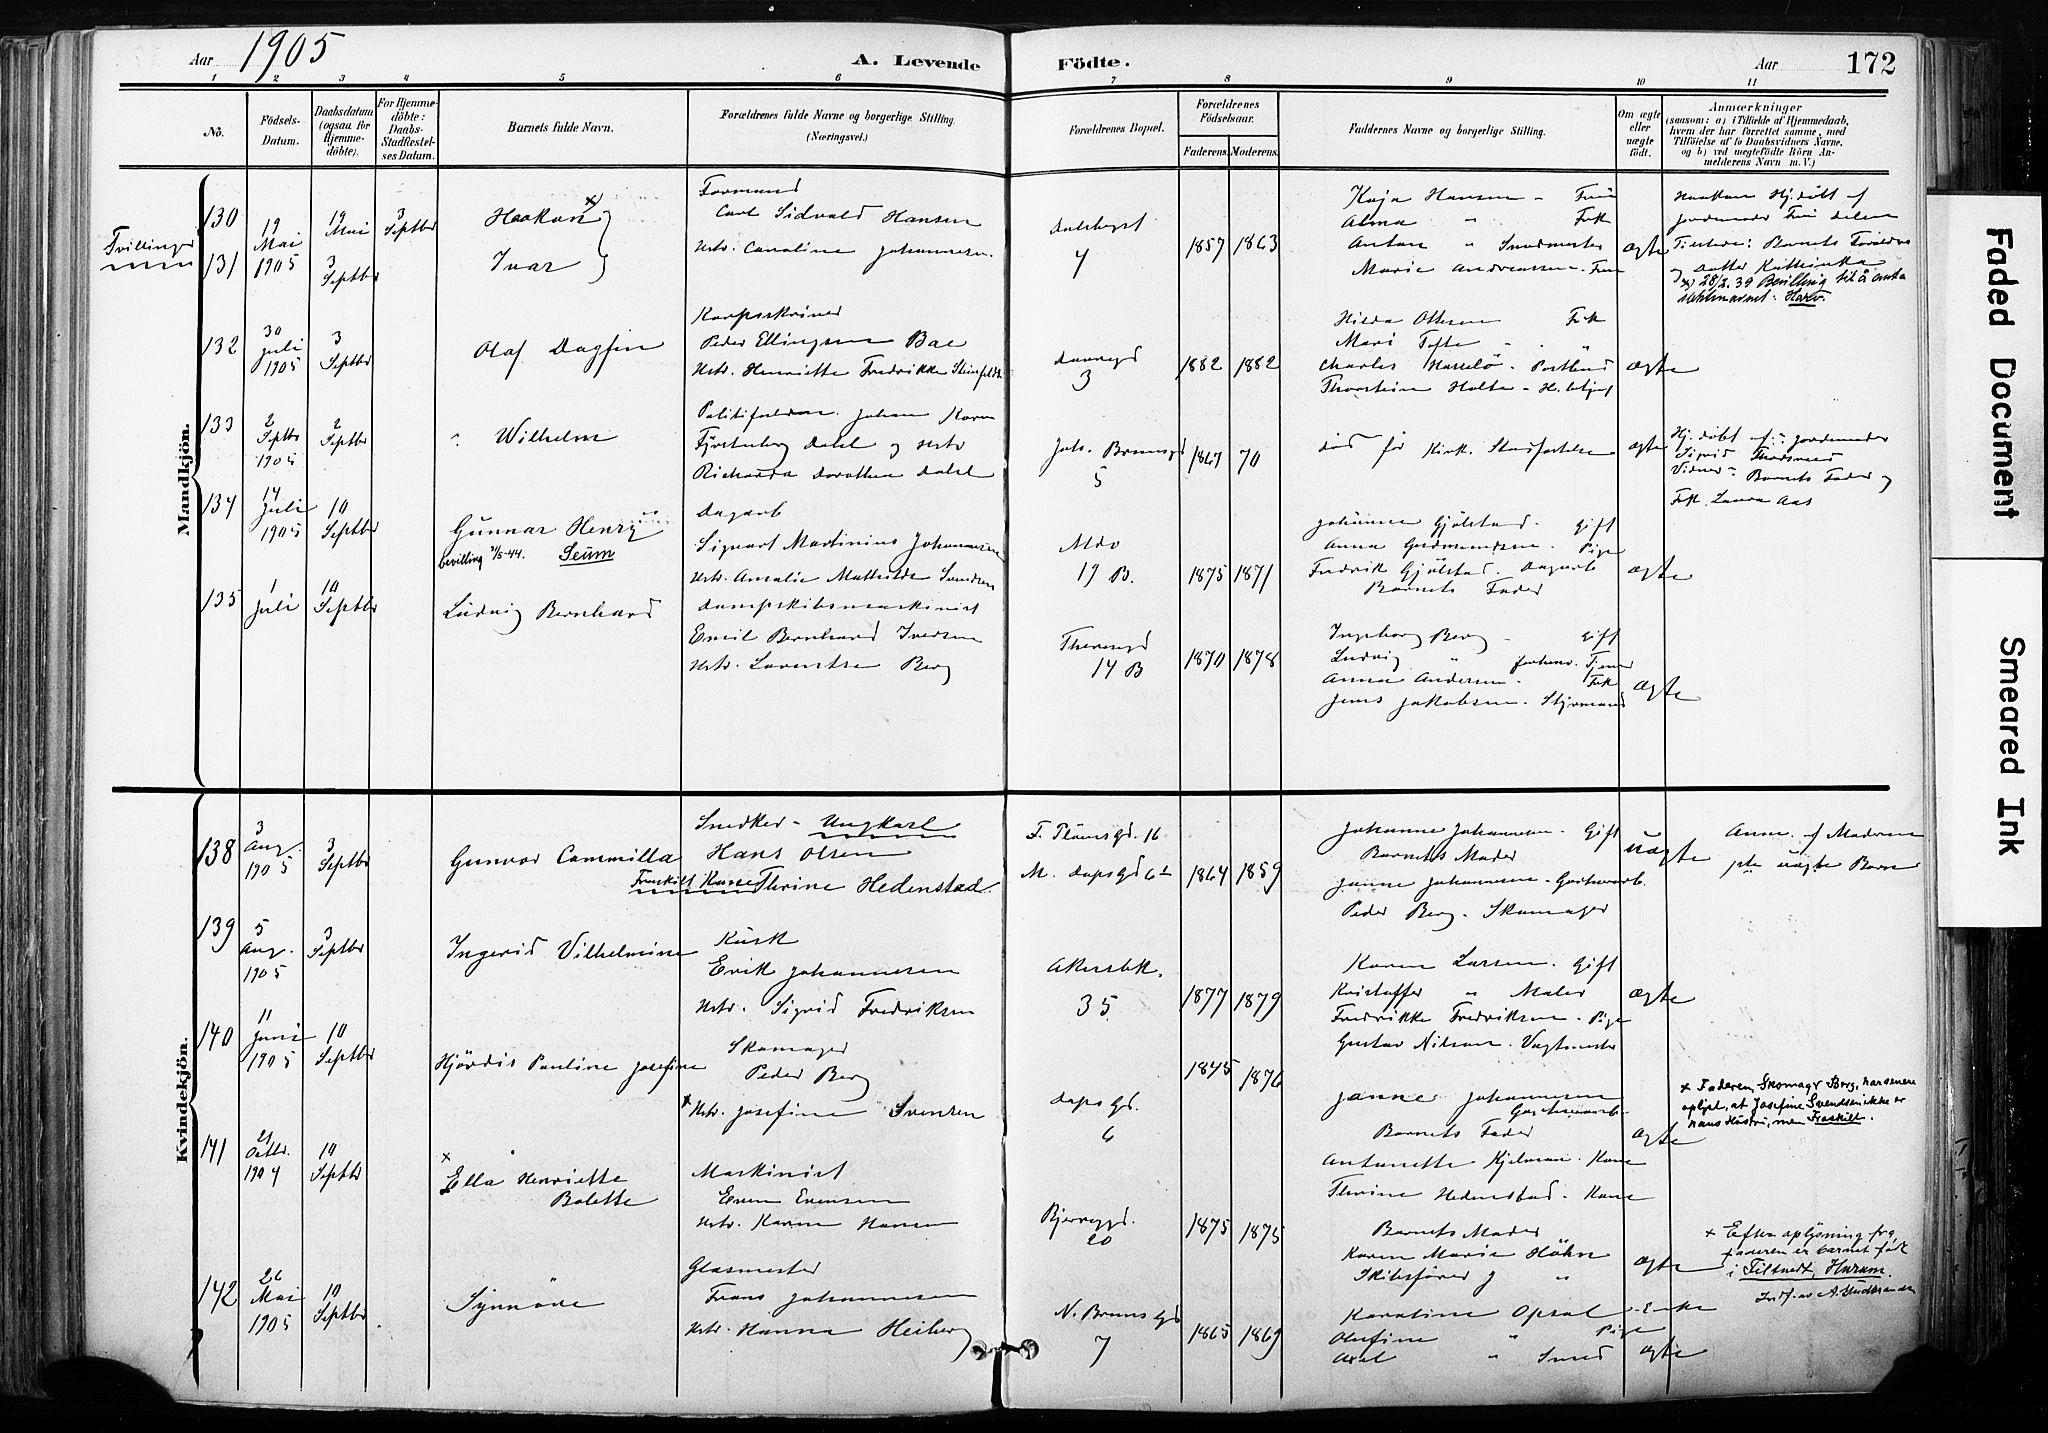 Aar 1905
A. Levende Födte.
Aar
172
1 2 3 4 5 6 7 8 9 10 11
No.
Födsels-Datum.
Daabsdatum (ogsaa for Hjemme-döbte).
For Hjemme-döbte: Daabs-Stadfæstel-ses Datum.
Barnets fulde Navn.
Forældrenes fulde Navne og borgerlige Stilling. (Næringsvei.)
Forældrenes Bopæl.
Forældrenes Födselsaar.
Faderens. Moderens.
Faddernes Navne og borgerlige Stilling.
Om ægte eller uægte födt.
Anmærkninger
(saasom: a) i Tilfælde af Hjemmedaab,
hvem der har forrettet samme, med
Tilföielse af to Daabsvidners Navne,
og b) ved uægtefödte Börn An-
melderens Navn m. V.)
Mandkjön.
Tvillinger
130
131
19 Mai 1905
19 Mai
3 Septbr
3 Septbr
Haakon x
Ivar
Formand
Carl Sidvald Hansen
Hstr. Caroline Johannesen.
Dalsberget
4
1857 1863
Kaja Hansen - Frue
Alma " Frk
Anton " Smedmester
Marie Andreassen - Frue
ægte
Haakon Hj.døbt af
Jordemoder Fru
Tilstede: Barnets Forældre
og datter Kathinka
x) 28/2.39 Bevilling til å anta
slektsnavnet:
132
30 Juli 1905
3 Septbr
Olaf Dagfin
Korpsskriver
Peder Ellingsen Bae
Hstr. Henriette Fredrikke
3
1882 1882
Hilda Ottesen Frk
Mari Tofte "
Charles
Thorstein Holte
ægte
133
2 Septbr 1905
2 Septbr
Wilhelm
Johan
Dahl og Hstr
Richarda Dorothea Dahl
Joh. Brunsgd
5
1867 70
død før Kirk. Stadfæstelse
ægte
Hj. døbt af: Jordemoder
Sigrid
Vidner: Barnets Fader og
Frk. Laura Aas
134
14 Juli 1905
10 Septbr
Gunnar Henry
bevilling 4/5-44. Seum
Dagarb
Sigvart Martinius Johannesen
Hstr. Amalie Mathilde Svendsen
19 B.
1875 1871
Johanne Gjölstad. Gift
Anna Gudmundsen. Pige
Fredrik Gjölstad. Dagarb
Barnets Fader
ægte
135
1 Juli
10 Septbr
Ludvig Bernhard
Dampskibsmaskinist
Emil Bernhard Iversen
Hstr. Laurentse Berg
Theresegd
14 B
1870 1878
Ingeborg Berg - Gift
Ludvig "
Anna Andersen - Frk
Jens Jakobsen - Styrmand
ægte
Kvindekjön.
138
3 Aug. 1905
3 Septbr
Gunvor Cammilla
Snedker - Ungkarl
Hans Olsen
Fraskilt Kone Thrine Hedenstad
F. Plöensgd. 16
M. Dopsgd 6
1864 1859
Johanne Johannesen. Gift
Barnets Moder
Janne Johannesen -
Peder Berg. Skomager
uægte
Anm. af Moderen
uægte Barn
139
5 Aug. 1905
3 Septbr
Ingerid Vilhelmine
Kusk
Erik Johannesen
Hstr. Sigrid Fredriksen
Akersbk.
35
1877 1879
Karen Larsen. Gift
Kristoffer " Maler
Fredrikke Fredriksen. Pige
Gustav Nilsen. Vagtmester
ægte
140
11 Juni 1905
10 Septbr
Hjördis Pauline Josefine
Skomager
Peder Berg
x Hstr. Josefine Svensen
Dops Gd.
6
1845 1876
Janne Johannesen
Barnets Fader
Antonette Kjelman. Kone
Thrine Hedenstad - Kone
ægte
x Faderen, Skomagr Berg, har senere
oplyst, at Josefine Svendsen ikke er
hans Hustru, men Fraskilt.
141
21 Octbr. 1904
10 Septbr
x Ella Henriette
Bolette
Maskinist
Even Evensen
Hstr. Karen Hansen
Bjerregd.
20
1875 1875
Barnets Moder
Karen Marie Höhn
Skibsfører J "
ægte
x Efter oplysning fra
faderen er barnet født
i Feltvedt, Hurum.
142
26 Mai 1905
10 Septbr
Synnöve
Glasmester
Frans Johannesen
Hstr. Hanna Heiberg
N. Bruns Gd
7
1865 1869
Karoline Opsal - Enke
Olufine " Pige
Axel " Smed
ægte
Faded Document
Smeared Ink